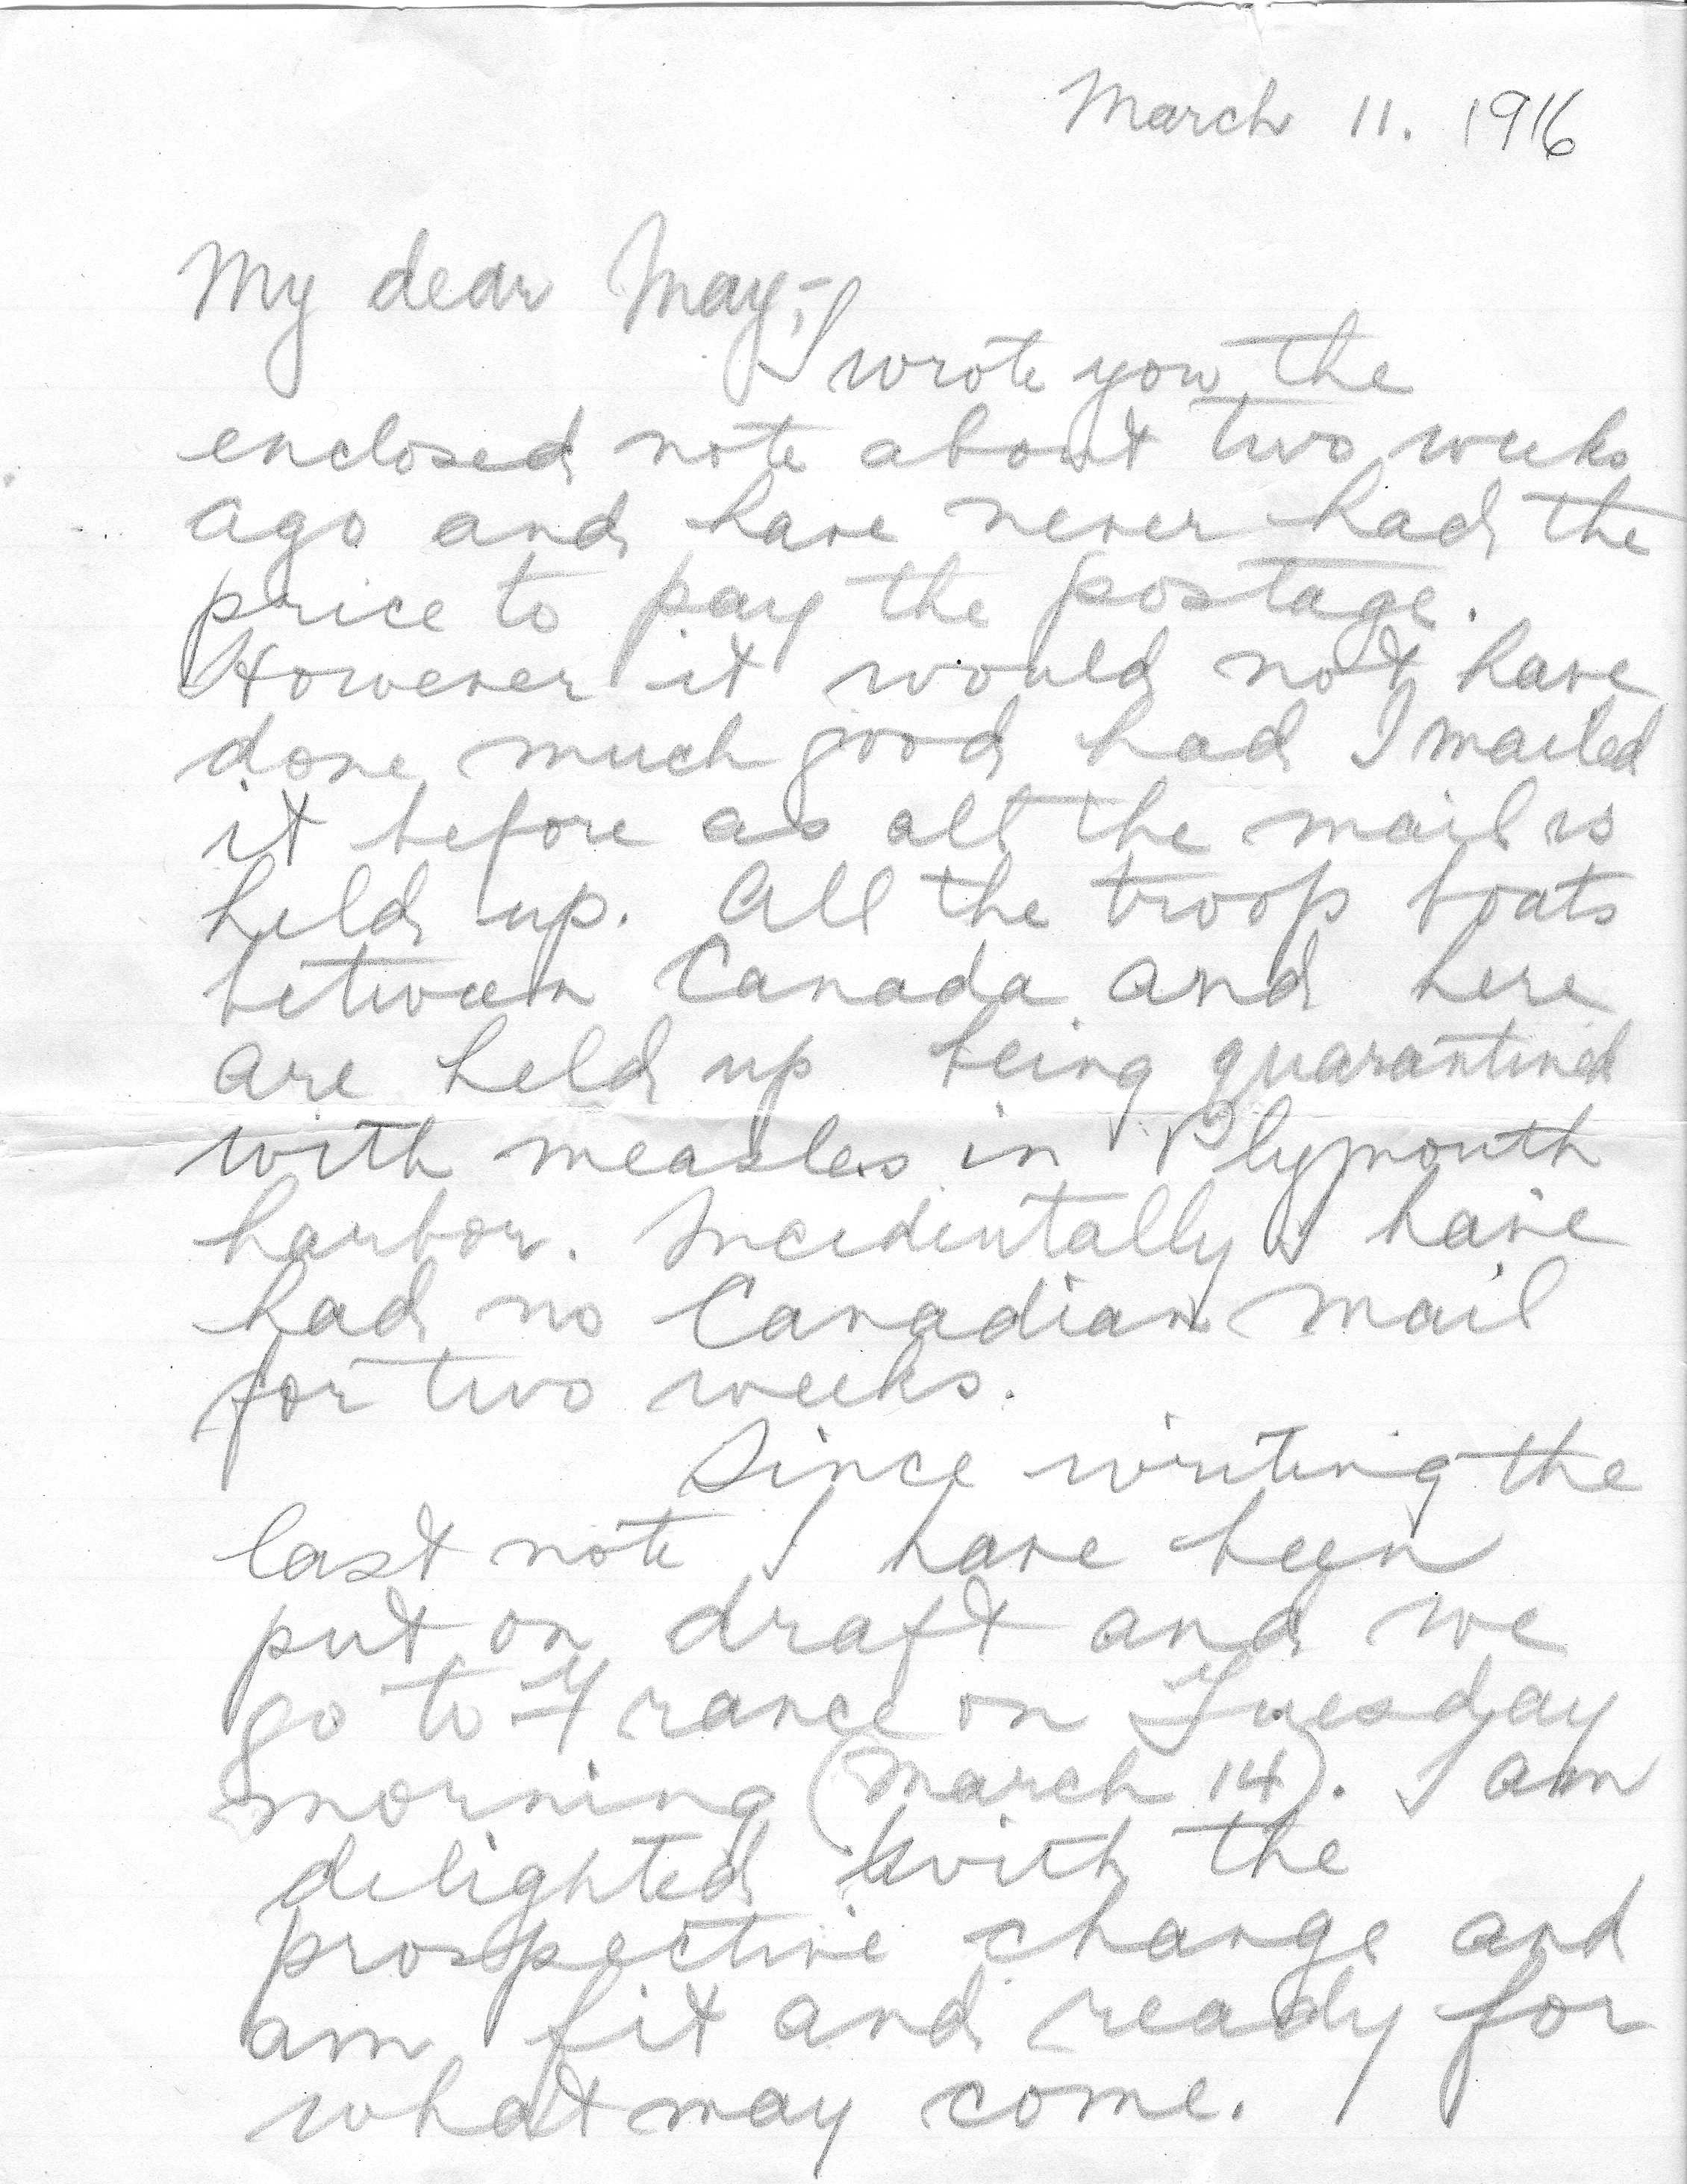 March 11. 1916
My dear May,-
I wrote you the
enclosed note about two weeks
ago and have never had the
price to pay the postage.
However it would not have
done much good had I mailed
it before as all the mail is
held up. All the troop boats
between Canada and here
are held up being quarantined
with measles in Plymouth
harbor. Incidentally I have
had no Canadian mail
for two weeks.
Since writing the
last note I have been
put on draft and we
go to France on Tuesday
morning (March 14). I am
delighted with the
prospective change and
am fit and ready for
what may come.